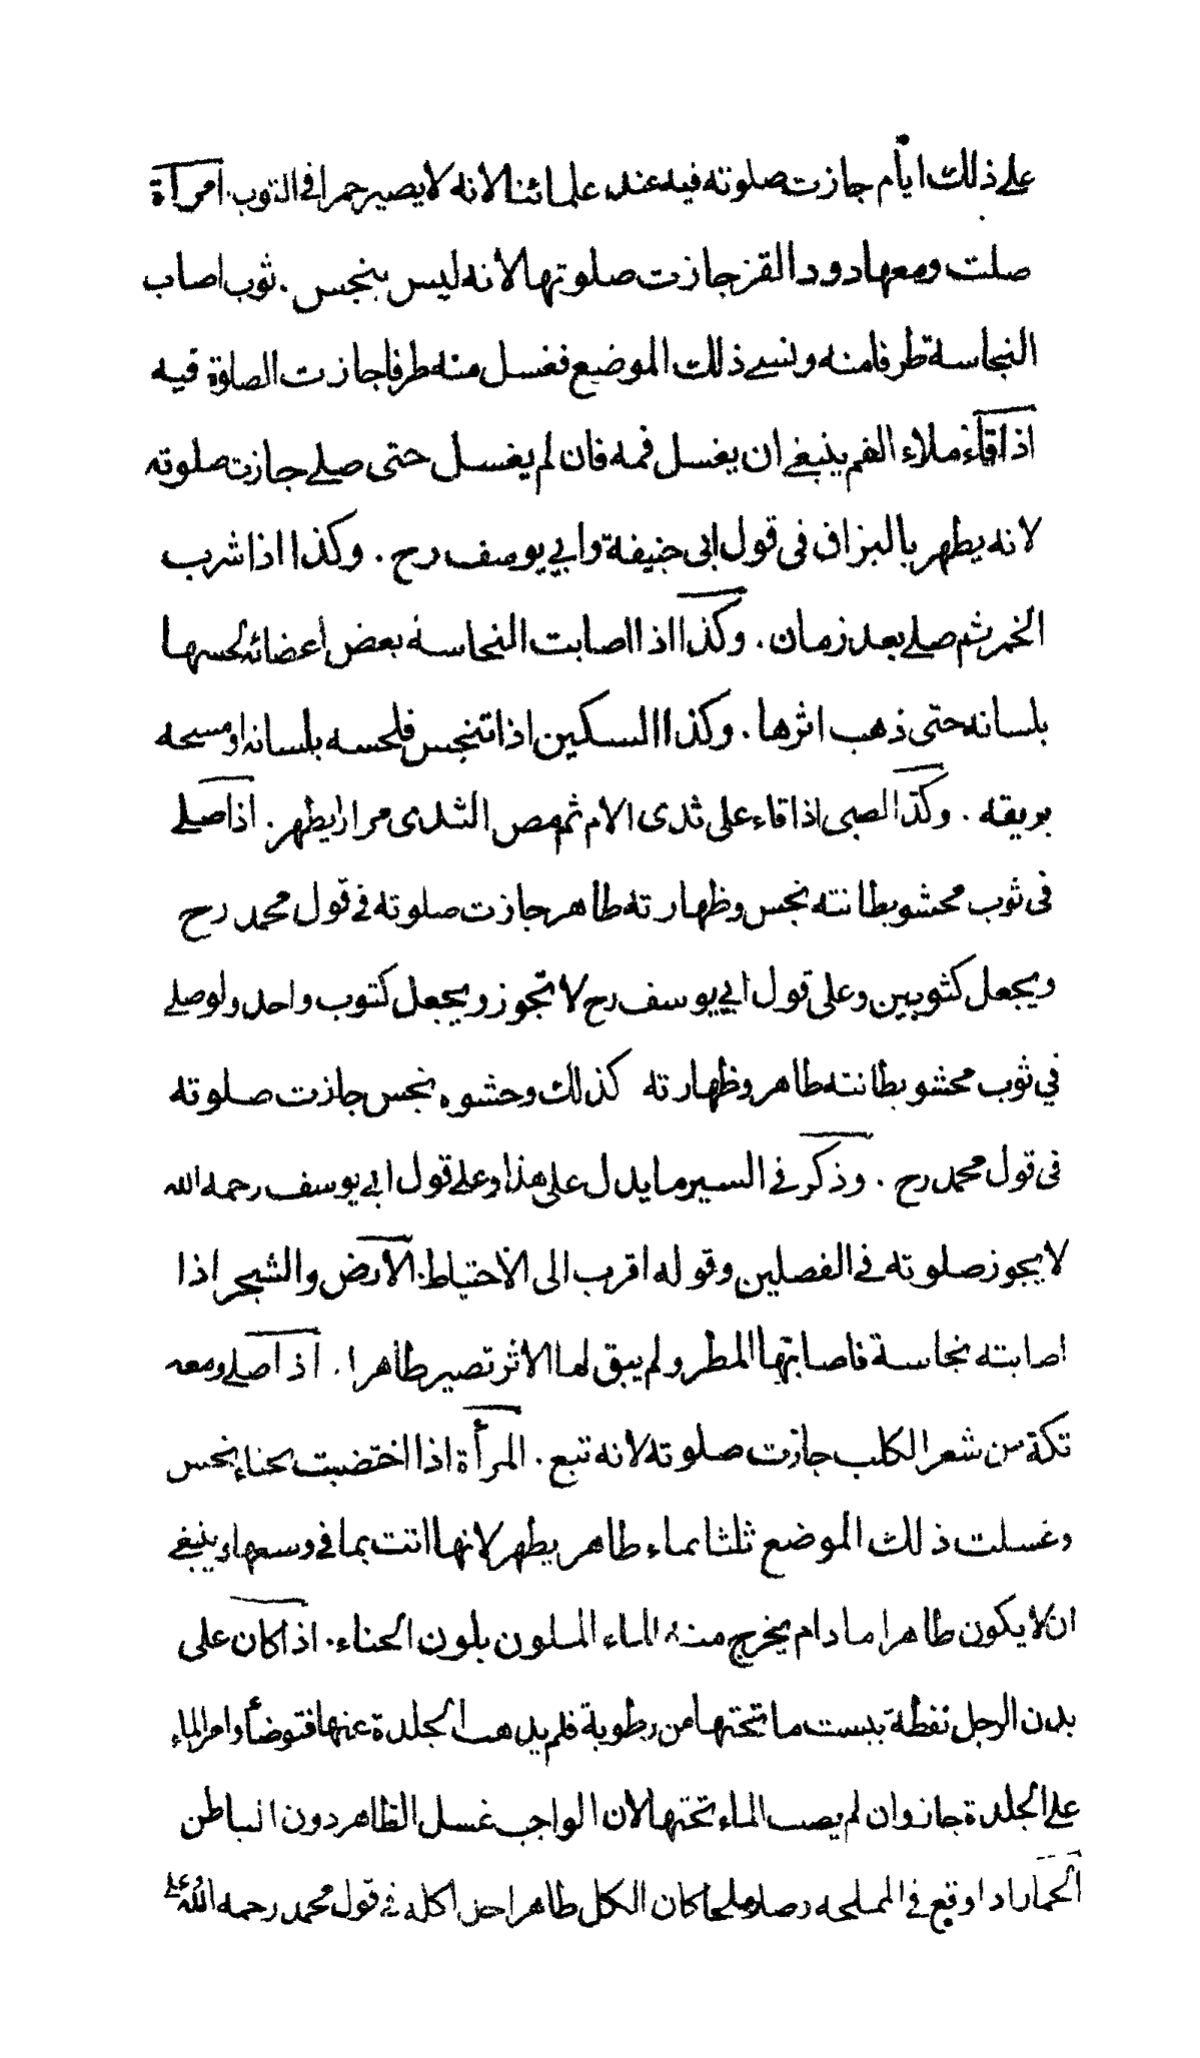 على ذلك ايام جازت صلوته فيه عند علمائنا لانه لا يصير خمرا في الثوب. امرأة
صلت ومعها دود القز جازت صلوتها لانه ليس بنجس. ثوب اصاب
النجاسة طرفا منه ونسي ذلك الموضع فغسل منه طرفا جازت الصلوة فيه
اذا قاء ملاء الفم ينبغي ان يغسل فمه فان لم يغسل حتى صلى جازت صلوته
لانه يطهر بالبزاق فى قول ابى حنيفة وابي يوسف رح. وكذا اذا شرب
الخمر ثم صلى بعد زمان. وكذا اذا اصابت النجاسة بعض أعضائه لحسها
بلسانه حتى ذهب اثرها. وكذا السكين اذا تنجس فلحسه بلسانه او مسحه
بريقه. وكذا الصبى اذا قاء على ثدى الام ثم مص الثدى مرارا يطهر. اذا صلى
فى ثوب محشو بطانته نجس وظهارته طاهر جازت صلوته في قول محمد رح
ويجعل كثوبين وعلى قول ابي يوسف رح لا تجوز ويجعل كثوب واحد ولو صلى
في ثوب محشو بطانته طاهر وظهارته كذلك وحشوه نجس جازت صلوته
فى قول محمد رح. وذكر في السير ما يدل على هذا وعلى قول ابي يوسف رحمه الله
لا يجوز صلوته في الفصلين وقوله اقرب الى الاحتياط. الارض والشجر اذا
اصابته نجاسة فاصابتها المطر ولم يبق لها الاثر تصير طاهرا. اذا صلى ومعه
تكة من شعر الكلب جازت صلوته لانه تبع. المرأة اذا اختضبت بحناء نجس
وغسلت ذلك الموضع ثلثا بماء طاهر يطهر لانها اتت بما في وسعها وينبغي
ان لا يكون طاهرا ما دام يخرج منه الماء الملون بلون الحناء. اذا كان على
بدن الرجل نفطة يبست ما تحتها من رطوبة فلم يذهب الجلدة عنها فتوضأ وامر الماء
على الجلدة جاز وان لم يصب الماء تحتها لان الواجب غسل الظاهر دون الباطن
الحمار اذا وقع في المملحه وصار ملحا كان الكل طاهرا حل اكله في قول محمد رحمه الله على